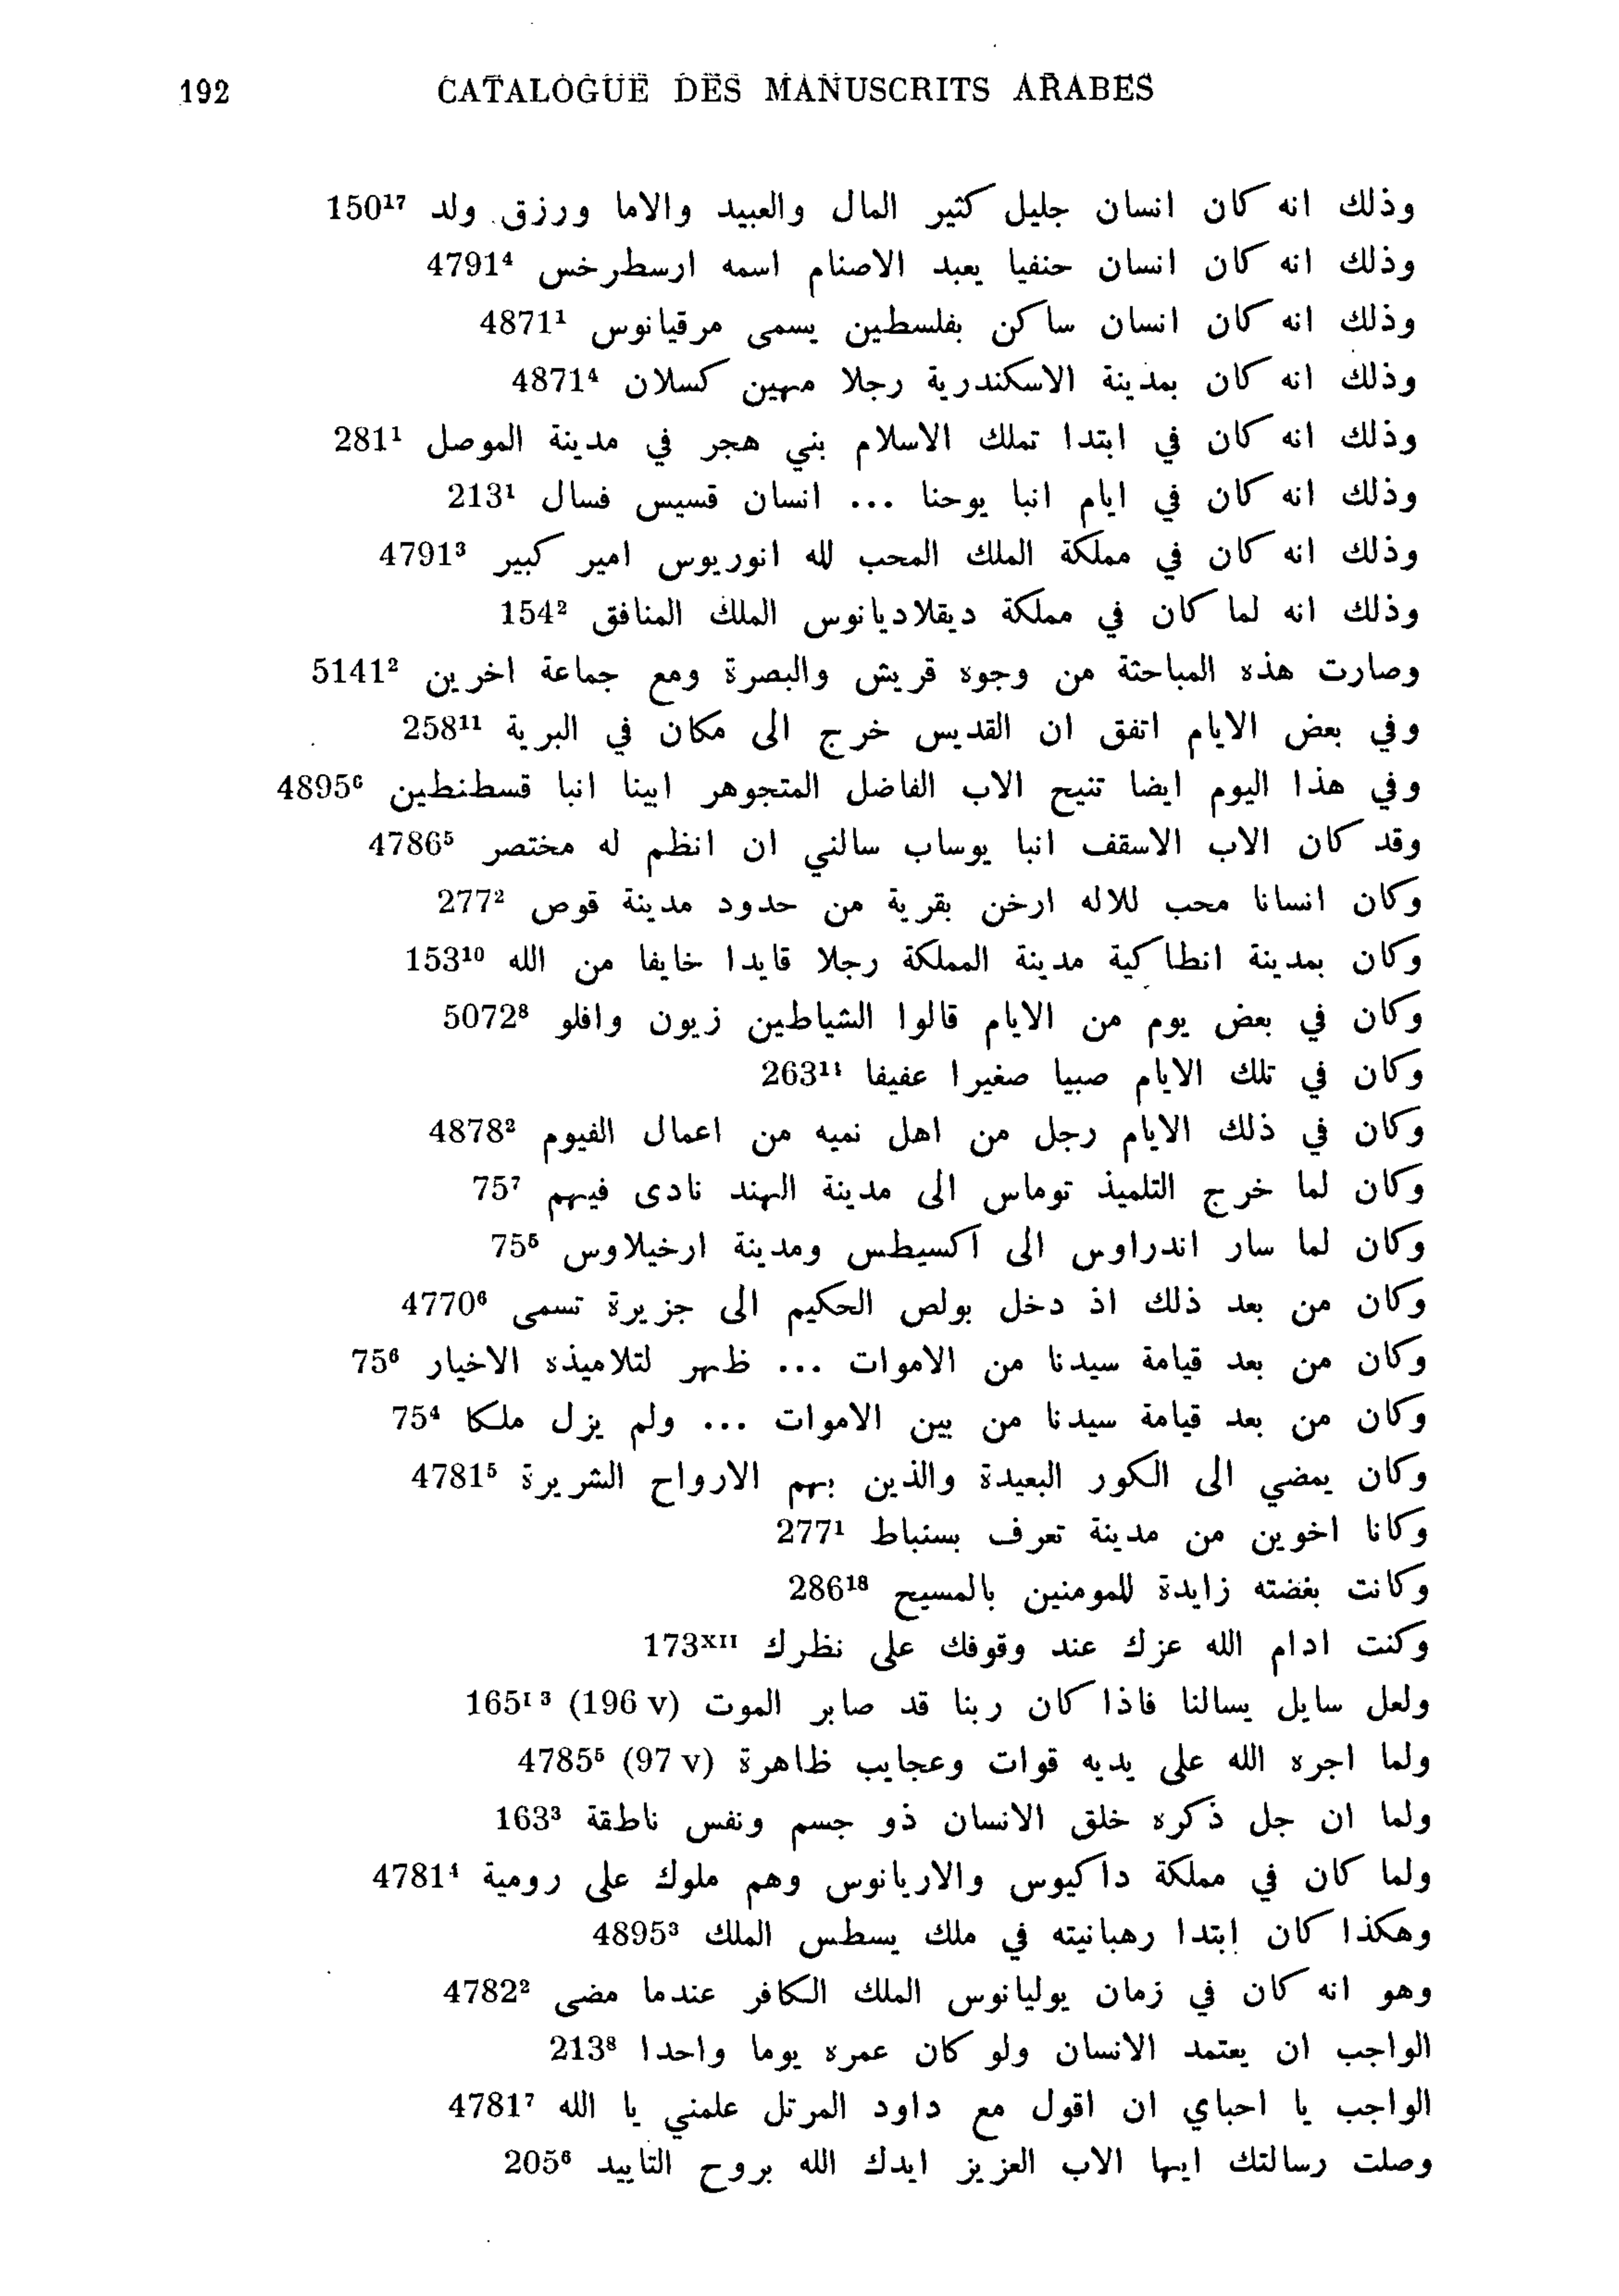 192 CATALOGUE DES MANUSCRITS ARABES
وذلك انه كان انسان جليل كثير المال والعبيد والاما ورزق ولد 150¹⁷
وذلك انه كان انسان حنفيا يعبد الاصنام اسمه ارسطرخس 4791⁴
وذلك انه كان انسان ساكن بفلسطين يسمى مرقيانوس 4871¹
وذلك انه كان بمدينة الاسكندرية رجلا مهين كسلان 4871⁴
وذلك انه كان في ابتدا تملك الاسلام بني هجر في مدينة الموصل 281¹
وذلك انه كان في ايام انبا يوحنا ... انسان قسيس فسال 213¹
وذلك انه كان في مملكة الملك المحب لله انوريوس امير كبير 4791³
وذلك انه لما كان في مملكة ديقلاديانوس الملك المنافق 154²
وصارت هذه المباحثة من وجوه قريش والبصرة ومع جماعة اخرين 5141²
وفي بعض الايام اتفق ان القديس خرج الى مكان في البرية 258¹¹
وفي هذا اليوم ايضا تنيح الاب الفاضل المتجوهر ابينا انبا قسطنطين 4895⁶
وقد كان الاب الاسقف انبا يوساب سالني ان انظم له مختصر 4786⁵
وكان انسانا محب للاله ارخن بقرية من حدود مدينة قوص 277²
وكان بمدينة انطاكية مدينة المملكة رجلا قايدا خايفا من الله 153¹⁰
وكان في بعض يوم من الايام قالوا الشياطين زيون وافلو 5072⁸
وكان في تلك الايام صبيا صغيرا عفيفا 263¹¹
وكان في ذلك الايام رجل من اهل نميه من اعمال الفيوم 4878²
وكان لما خرج التلميذ توماس الى مدينة الهند نادى فيهم 75⁷
وكان لما سار اندراوس الى اكسيطس ومدينة ارخيلاوس 75⁵
وكان من بعد ذلك اذ دخل بولص الحكيم الى جزيرة تسمى 4770⁶
وكان من بعد قيامة سيدنا من الاموات ... ظهر لتلاميذه الاخيار 75⁶
وكان من بعد قيامة سيدنا من بين الاموات ... ولم يزل ملكا 75⁴
وكان يمضي الى الكور البعيدة والذين بهم الارواح الشريرة 4781⁵
وكانا اخوين من مدينة تعرف بسنباط 277¹
وكانت بغضته زايدة للمومنين بالمسيح 286¹⁸
وكنت ادام الله عزك عند وقوفك على نظرك 173ˣᴵᴵ
ولعل سايل يسالنا فاذا كان ربنا قد صابر الموت (196 v) 165ᴵ ³
ولما اجره الله على يديه قوات وعجايب ظاهرة (97 v) 4785⁵
ولما ان جل ذكره خلق الانسان ذو جسم ونفس ناطقة 163³
ولما كان في مملكة داكيوس والاريانوس وهم ملوك على رومية 4781⁴
وهكذا كان ابتدا رهبانيته في ملك يسطس الملك 4895³
وهو انه كان في زمان يوليانوس الملك الكافر عندما مضى 4782²
الواجب ان يعتمد الانسان ولو كان عمره يوما واحدا 213⁸
الواجب يا احباي ان اقول مع داود المرتل علمني يا الله 4781⁷
وصلت رسالتك ايها الاب العزيز ايدك الله بروح التاييد 205⁶